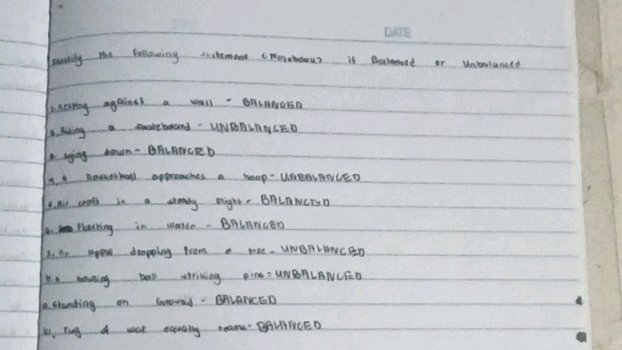 DATE
the following statement if Balanced or Unbalanced
against a wall - BALANCED
Riding a skateboard - UNBALANCED
down - BALANCED
A Basketball approaches a hoop - UNBALANCED
in a steady flight - BALANCED
Floating in water - BALANCED
dropping from a tree - UNBALANCED
ball striking pins - UNBALANCED
standing on Ground - BALANCED
10. Tug of war equally teams - BALANCED